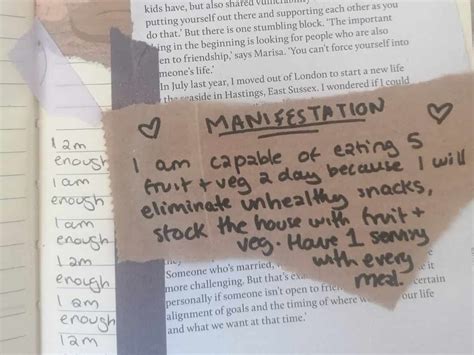 kids have, but also shared
putting yourself out there and supporting each other as you
do that.' But there is one stumbling block. 'The important
in the beginning is looking for people who are also
en to friendship,' says Marisa. 'You can't force yourself into
meone's life.'
In July last year, I moved out of London to start a new life
seaside in Hastings, East Sussex. I wondered if I could
MANIFESTATION
I am capable of eating 5
fruit + veg a day because I will
eliminate unhealthy snacks,
stock the house with fruit +
veg. Have 1 serving
with every
meal.
I am
enough
I am
enough
I am
enough
I am
enough
I am
enough
I am
Someone who's married,
more challenging. But that's
certain
personally if someone isn't open to
alignment of goals and the timing of where
our life
and what we want at that time.'